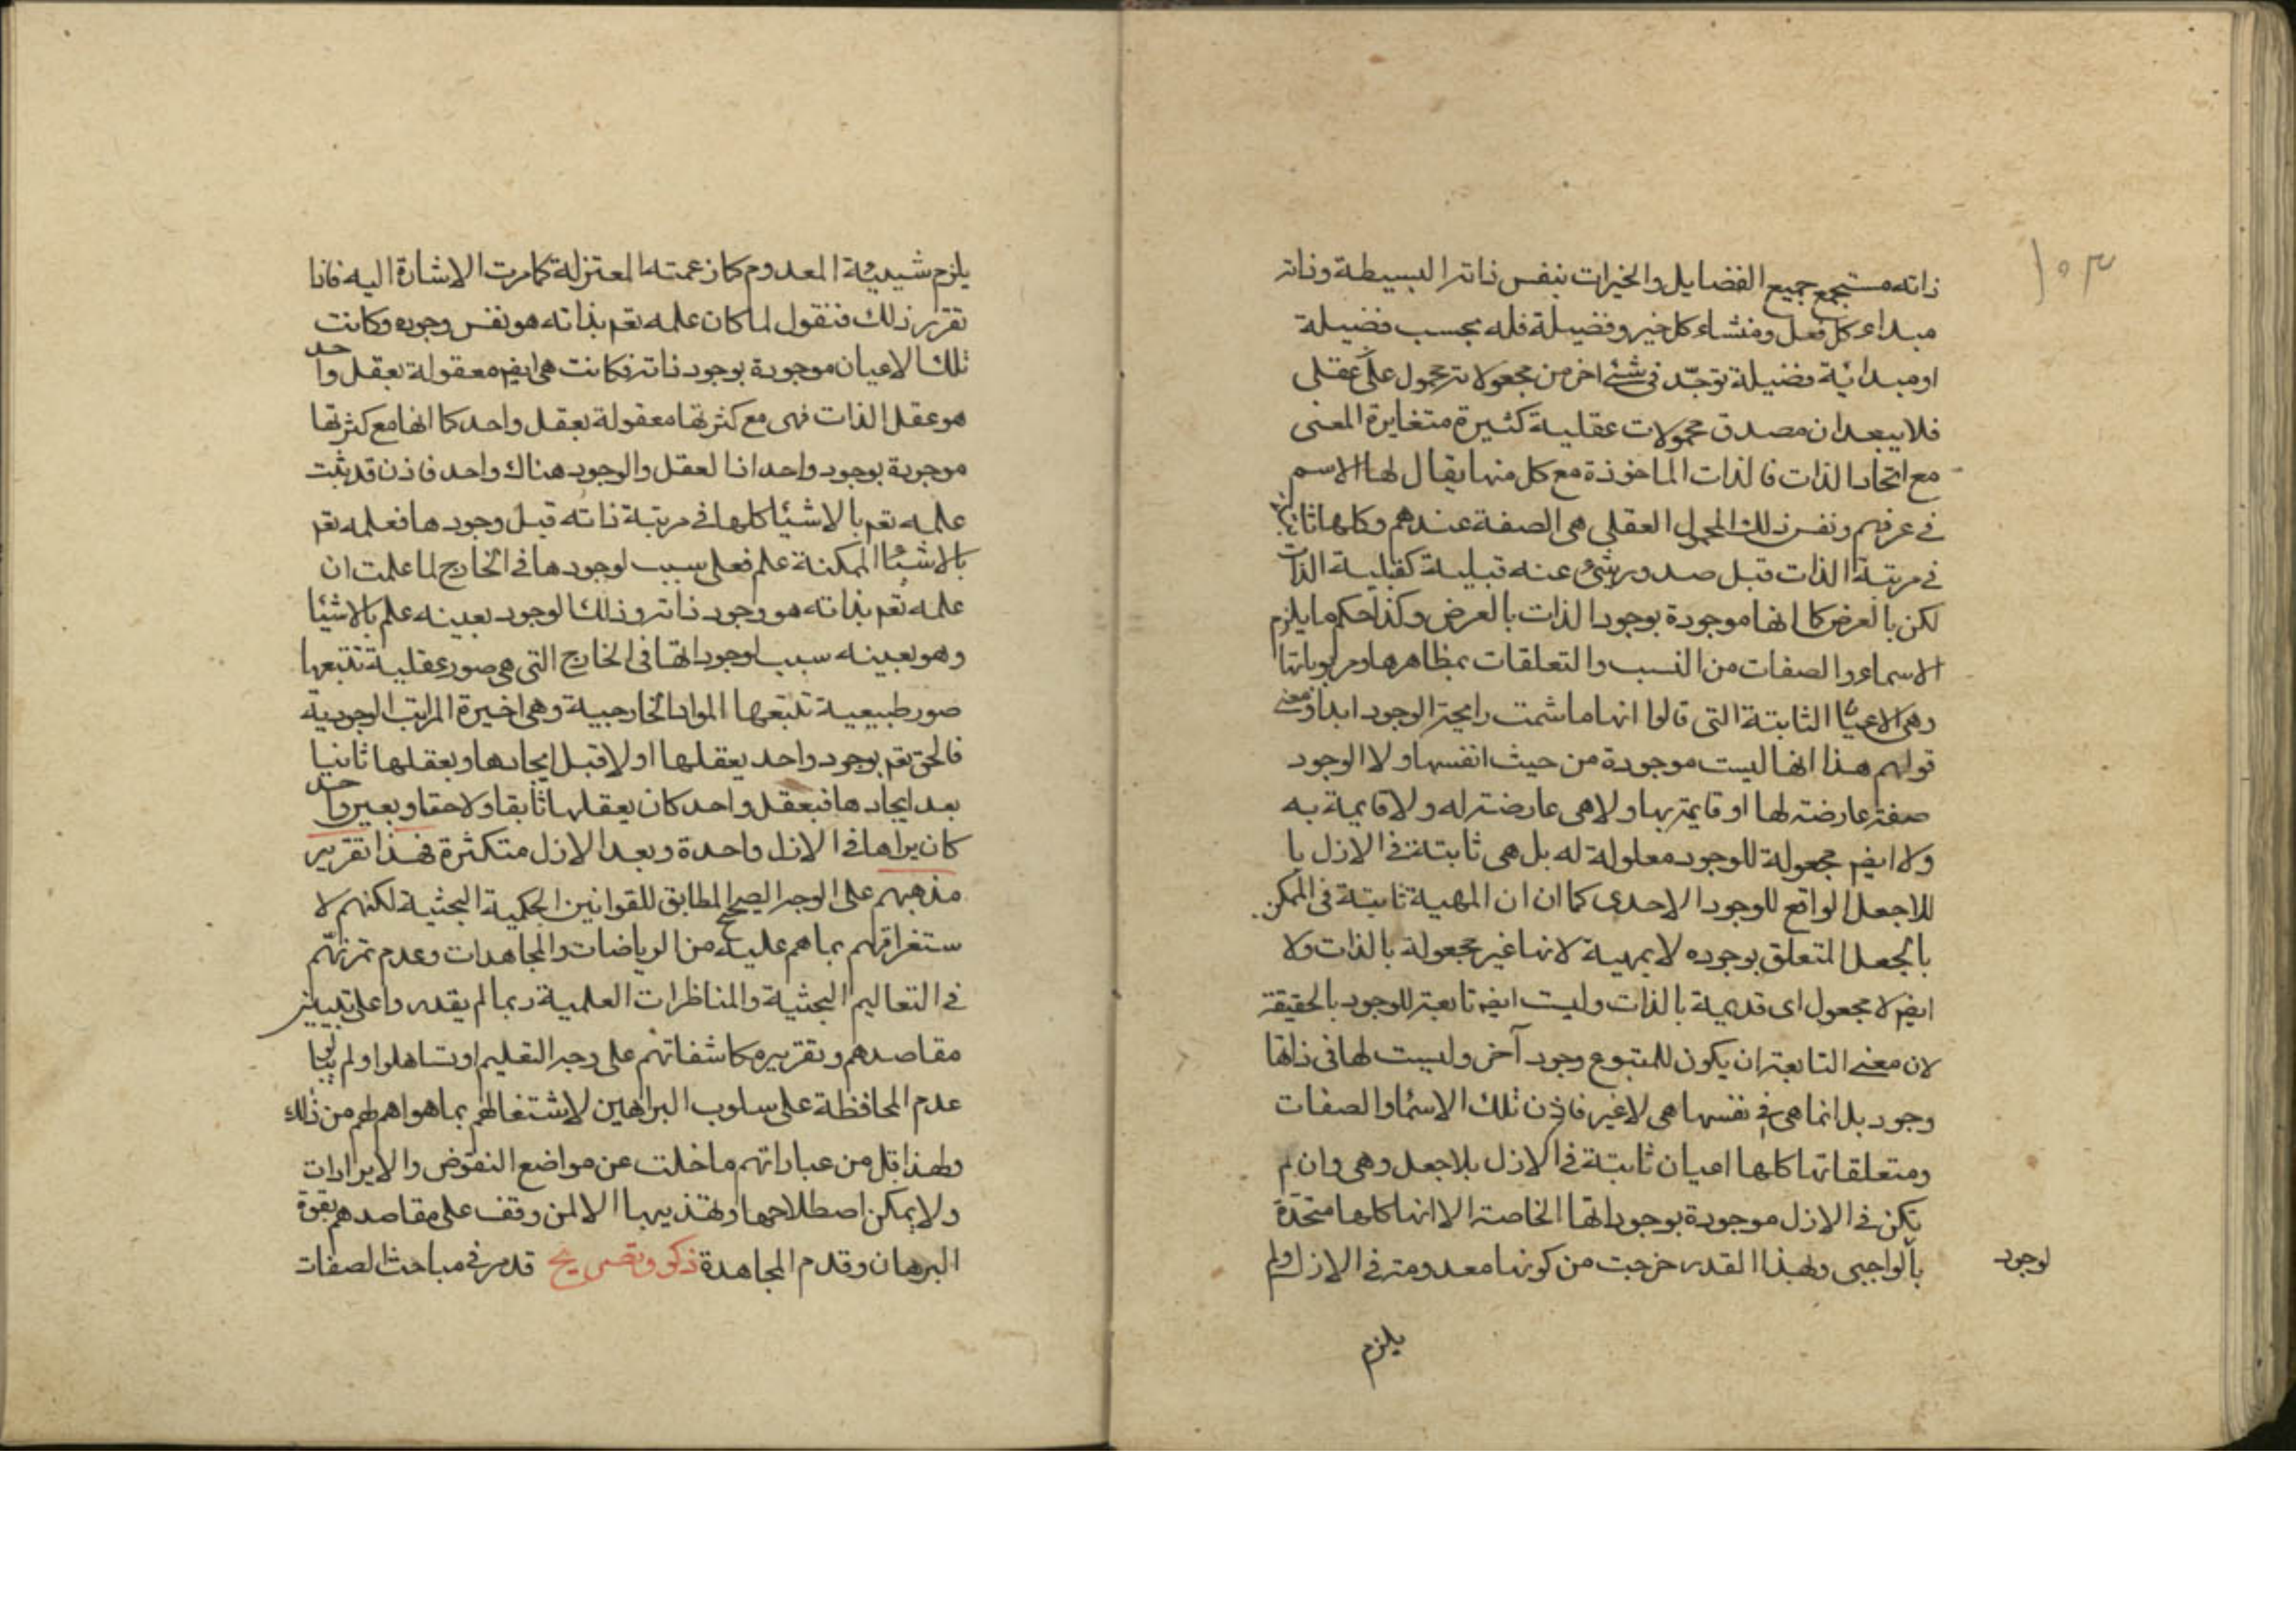 ١٥٣
ذاته مستجمع جميع الفضايل والخيرات بنفس ذاته البسيطة وذاته
مبداء كل فعل ومنشاء كل خير وفضيلة فله بحسب فضيلة
او مبدائية فضيلة توجد فى شئ اخر من مجعولاته محمول عقلى
فلا يبعد ان مصدق محمولات عقلية كثيرة متغايرة المعنى
مع اتحاد الذات فالذات الماخوذة مع كل منها يقال لها الاسم
فى عرفهم ونفس ذلك المحمول العقلى هى الصفة عندهم وكلها ثابتة
فى مرتبة الذات قبل صدور شئ عنه قبلية كقبلية الذات
لكن بالعرض كما انها موجودة بوجود الذات بالعرض وكذا حكم ما يلزم
الاسماء والصفات من النسب والتعلقات بمظاهرها ومربوباتها
وهى الاعيان الثابتة التى قالوا انها ما شمت رايحة الوجود ابدا ومعنى
قولهم هذا انها ليست موجودة من حيث انفسها ولا الوجود
صفة عارضة لها او قايمة بها ولا هى عارضة له ولا قايمة به
ولا ايضم مجعولة للوجود معلولة له بل هى ثابتة فى الازل با
للاجعل الواقع للوجود الاحدى كما ان ان المهية ثابتة فى الممكن
بالجعل المتعلق بوجوده لا بمهية لانها غير مجعولة بالذات ولا
ايضم لا مجعول اى قديمة بالذات وليست ايضم تابعة للوجود بالحقيقة
لان معنى التابعة ان يكون للمتبوع وجود آخر وليست لها فى ذاتها
وجود بل انما هى فى نفسها هى لا غير فاذن تلك الاسماء والصفات
ومتعلقاتها كلها اعيان ثابتة فى الازل بلا جعل وهى وان لم
يكن فى الازل موجودة بوجوداتها الخاصة الا انها كلها متحدة
بالواجبى ولهذا القدر خرجت من كونها معدومة فى الازل ولم
لوجود
يلزم
يلزم شيئية المعدوم كما زعمته المعتزلة كما مرت الاشارة اليه فاذا
تقرر ذلك فنقول لما كان علمه تعم بذاته هو نفس وجوده وكانت
تلك الاعيان موجودة بوجود ذاته فكانت هى ايضم معقولة بعقل واحد
هو عقل الذات فهى مع كثرتها معقولة بعقل واحد كما انها مع كثرتها
موجودة بوجود واحد اذا لعقل والوجود هناك واحد فاذن قد ثبت
علمه تعم بالاشيا كلها فى مرتبة ذاته قبل وجودها فعلمه تعم
بالاشيا الممكنة علم فعلى سبب لوجودها فى الخارج لما علمت ان
علمه تعم بذاته هو وجود ذاته وذلك الوجود بعينه علم بالاشيا
وهو بعينه سبب لوجوداتها فى الخارج التى هى صور عقلية تتبعها
صور طبيعية تتبعها المواد الخارجية وهى اخيرة المراتب الوجودية
فالحق تعم بوجود واحد يعقلها اولا قبل ايجادها ويعقلها ثانيا
بعد ايجادها فبعقل واحد كان يعقلها ثابقا ولاحقا وبعين واحد
كان يراها فى الازل واحدة وبعد الازل متكثرة فهذا تقرير
مذهبهم على الوجه الصحيح المطابق للقوانين الحكمية البحثية لكنهم لا
ستغراقهم بما هم عليه من الرياضات والمجاهدات وعدم تمرنهم
فى التعاليم البحثية والمناظرات العلمية ربما لم يقدروا على تبيين
مقاصدهم وتقريره مكاشفاتهم على وجه التعليم او تساهلوا ولم يبالوا
عدم المحافظة على سلوب البراهين لاشتغالهم بما هو اهم لهم من ذلك
ولهذا قل من عباراتهم ما خلت عن مواضع النقوض والايرادات
ولا يمكن اصطلاحها وتهذيبها الا لمن وقف على مقاصدهم بقوة
البرهان وقدم المجاهدة ذكر وتصريح قد مر فى مباحث الصفات